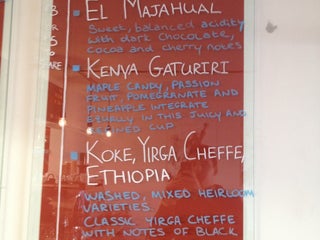 EL MAJAHUAL
SWEET, BALANCED ACIDITY
WITH DARK CHOCOLATE,
COCOA AND CHERRY NOTES
KENYA GATURIRI
MAPLE CANDY, PASSION
FRUIT, POMEGRANATE AND
PINEAPPLE INTEGRATE
EQUALLY IN THIS JUICY AND
REFINED CUP
KOKE, YIRGA CHEFFE,
ETHIOPIA
WASHED, MIXED HEIRLOOM
VARIETIES.
CLASSIC YIRGA CHEFFE
WITH NOTES OF BLACK